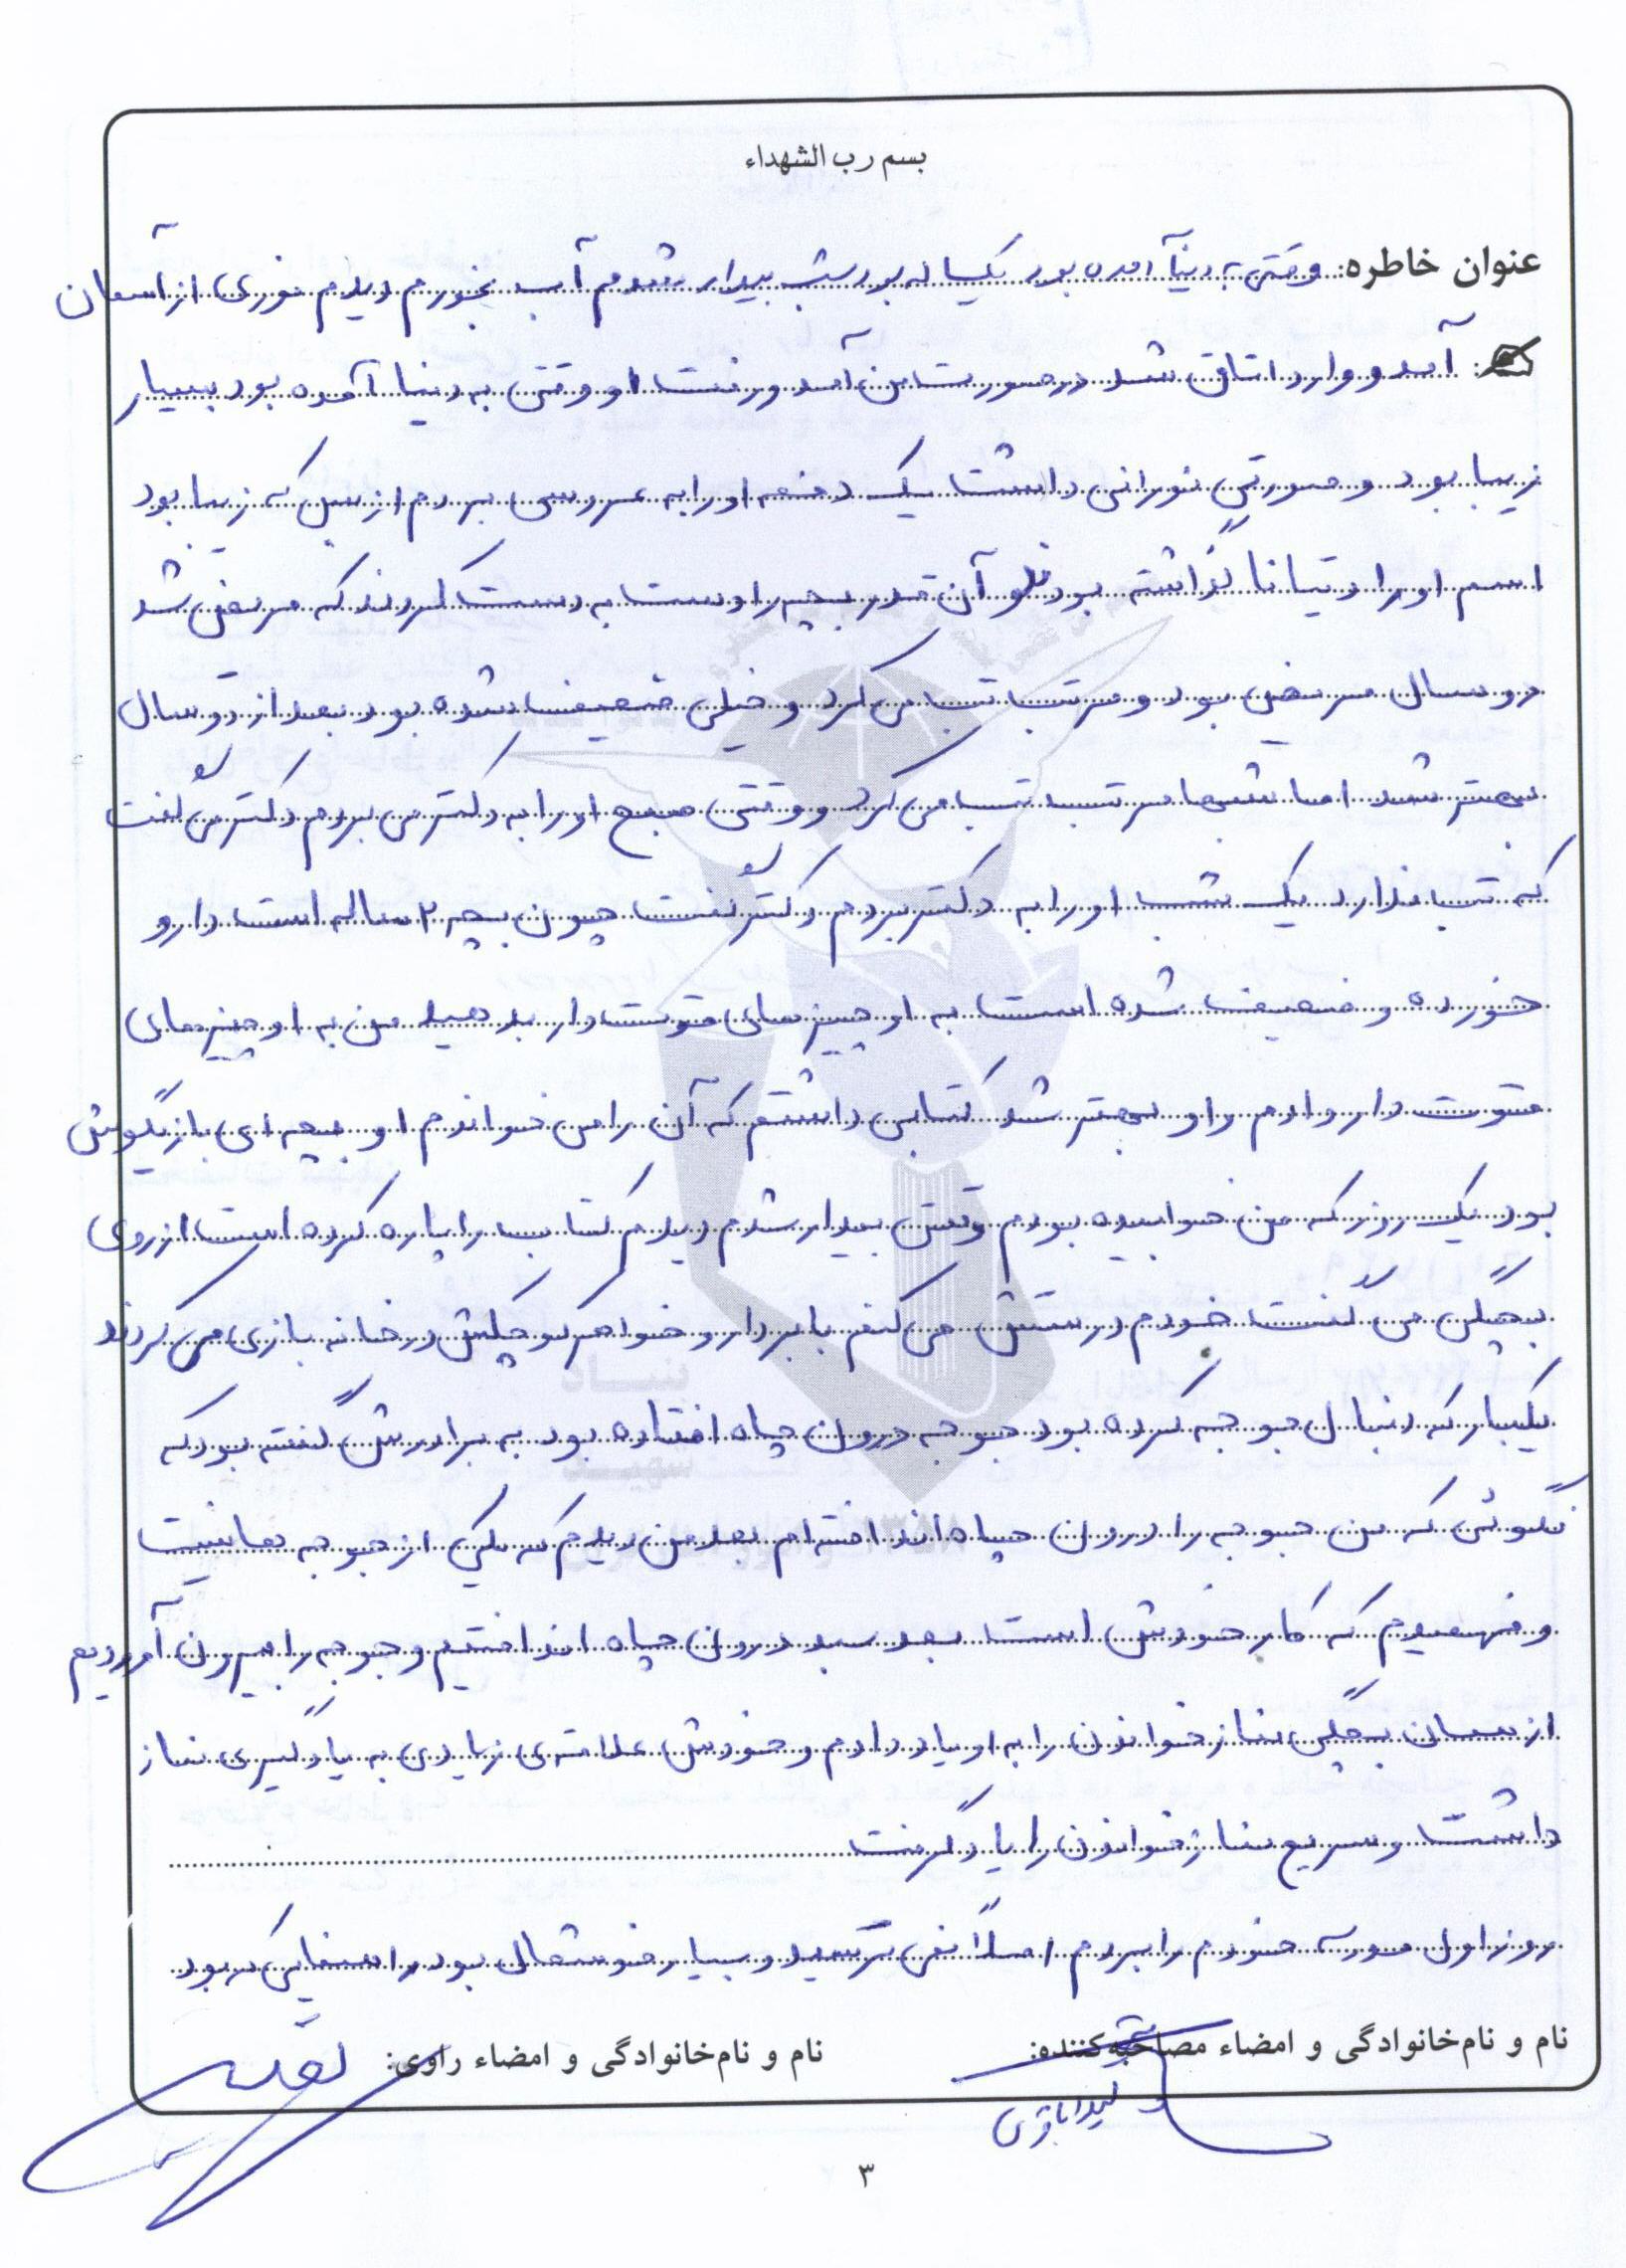 بسم رب الشهداء
عنوان خاطره: وقتی به دنیا آمده بود یکساله بود شب بیدار شدم آب بخورم دیدم نوری از آسمان
آمد و وارد اتاق شد در صورت من آمد و رفت او وقتی به دنیا آمده بود بسیار
زیبا بود و صورتی نورانی داشت یک دفعه او را به عروسی بردم از بس که زیبا بود
اسم او را تیانا گذاشته بود آن قدر بچه را دست به دست کردند که مریض شد
دو سال مریض بود و مرتب تب می کرد و خیلی ضعیف شده بود بعد از دو سال
بهتر شد اما شبها مرتب تب می کرد و وقتی صبح او را به دکتر می بردم دکتر می گفت
که تب ندارد یک شب او را به دکتر بردم دکتر گفت چون بچه ۲ ساله است دارو
خورده و ضعیف شده است به او چیزهای قوت دار بدهید من به او چیزهای
قوت دار دادم و او بهتر شد کتابی داشتم که آن را می خواندم او بچه ای بازیگوش
بود یک روز که من خوابیده بودم وقتی بیدار شدم دیدم کتاب را پاره کرده است از روی
بچگی می گفت خودم درستش می کنم با برادر و خواهر کوچکش در خانه بازی می کردند
یکبار که دنبال جوجه کرده بود جوجه درون چاه افتاده بود به برادرش گفته بود که
نگوئی که من جوجه را درون چاه انداختم بعد من دیدم که یکی از جوجه ها نیست
و فهمیدم که کار خودش است بعد سبد درون چاه انداختیم و جوجه را بیرون آوردیم
از سان بچگی نماز خواندن را به او یاد دادم و خودش علاقه ی زیادی به یادگیری نماز
داشت و سریع نماز خواندن را یاد گرفت
روز اول مدرسه خودم را بردم اصلاً نمی ترسید و بسیار خوشحال بود راهنمایی که بود
نام و نام‌خانوادگی و امضاء مصاحبه‌کننده:
نام و نام‌خانوادگی و امضاء راوی:
۳